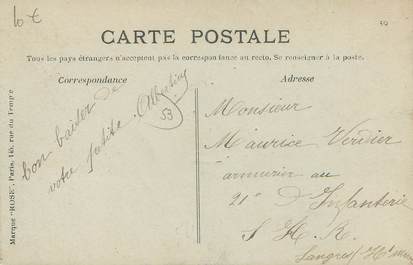 10 €
50
CARTE POSTALE
Tous les pays étrangers n'acceptent pas la correspondance au recto. Se renseigner à la poste.
Correspondance
Adresse
bon baiser de
votre petite Albertine
53
Monsieur
Maurice Verdier
armurier au
21e D'Infanterie
S H. R.
Langres (Hte
Marque "ROSE", Paris, 145, rue du Temple